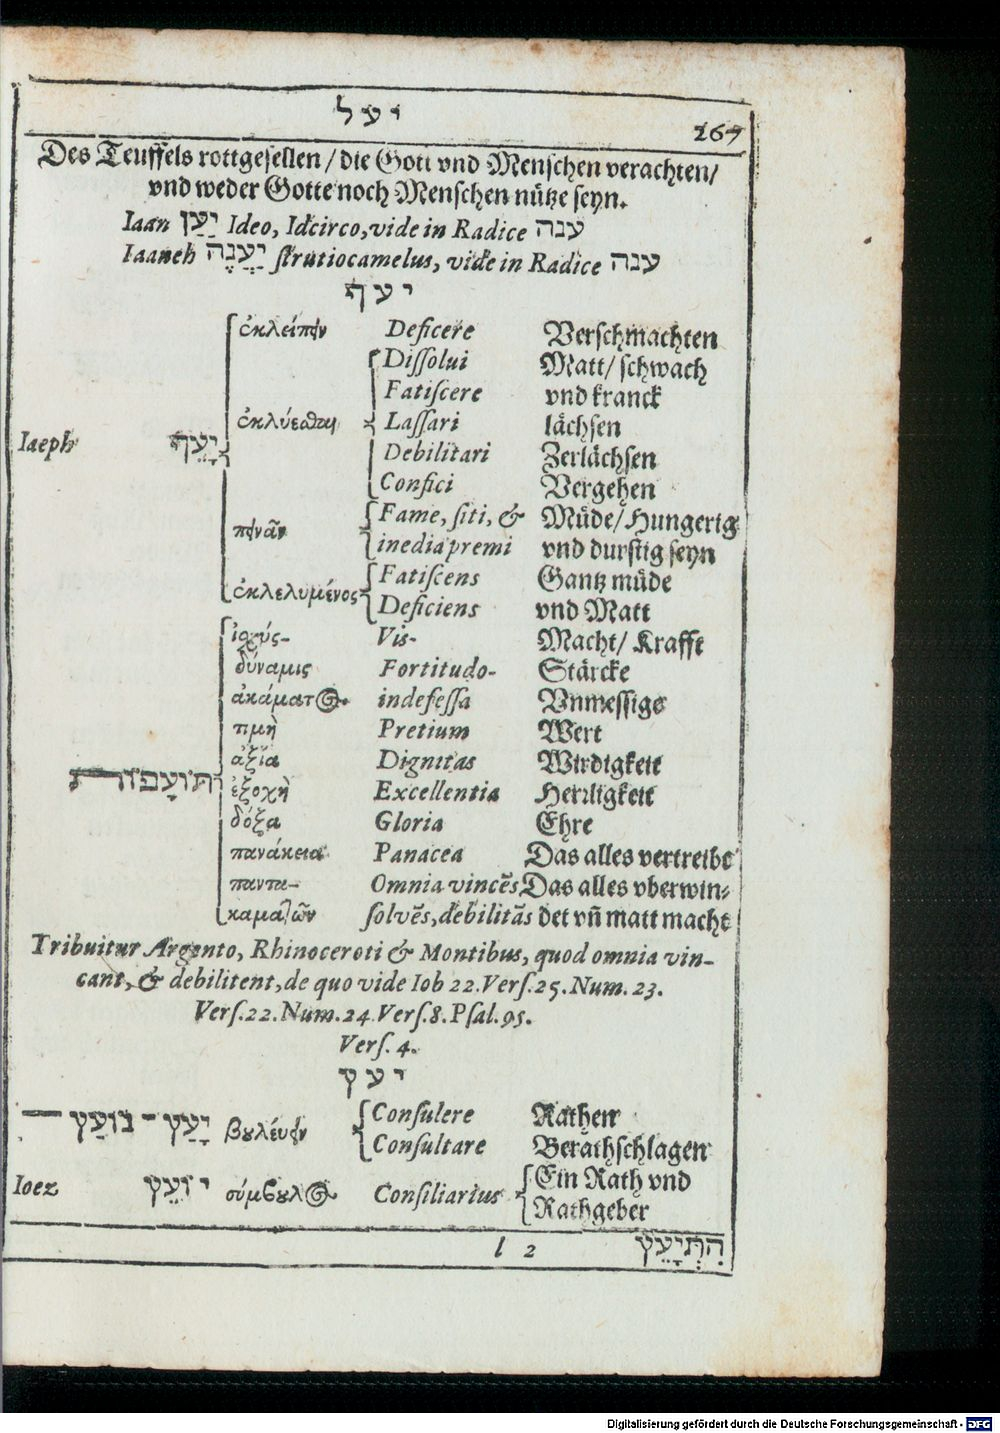 יעל
267
Des Teuffels rottgesellen / die Gott vnd Menschen verachten/
vnd weder Gotte noch Menschen nütze seyn.
Iaan יַעַן Ideo, Idcirco, vide in Radice ענה
Iaaneh יַעֲנֶה strutiocamelus, vide in Radice ענה
יעף
ἐκλείπειν Deficere Verschmachten
Dissolui Matt/ schwach
Fatiscere vnd kranck
ἐκλύεσθαι Lassari lächsen
Iaeph יָעֵף Debilitari Zerlächsen
Confici Vergehen
Fame, siti, & Müde/ Hungerig
πεινᾶν inedia premi vnd durstig seyn
Fatiscens Gantz müde
ἐκλελυμένος Deficiens vnd Matt
ἰσχύς- Vis- Macht/ Krafft
δύναμις Fortitudo- Stärcke
ἀκάματος indefessa Vnmessige
τιμὴ Pretium Wert
ἀξία Dignitas Wirdigkeit
תּוֹעָפוֹת ἐξοχὴ Excellentia Herrligkeit
δόξα Gloria Ehre
πανάκεια Panacea Das alles vertreibe
παντα- Omnia vincēs Das alles vberwin-
καματῶν solvēs, debilitās det vñ matt macht
Tribuitur Argento, Rhinoceroti & Montibus, quod omnia vin-
cant, & debilitent, de quo vide Iob 22. Vers. 25. Num. 23.
Vers. 22. Num. 24. Vers. 8. Psal. 95.
Vers. 4.
יעץ
Consulere Rathen
יָעַץ - נוֹעַץ βουλεύειν Consultare Berathschlagen
Ioez יוֹעֵץ σύμβουλος Consiliarius Ein Rath vnd
Rathgeber
l 2 הִתְיָעֵץ
Digitalisierung gefördert durch die Deutsche Forschungsgemeinschaft - DFG